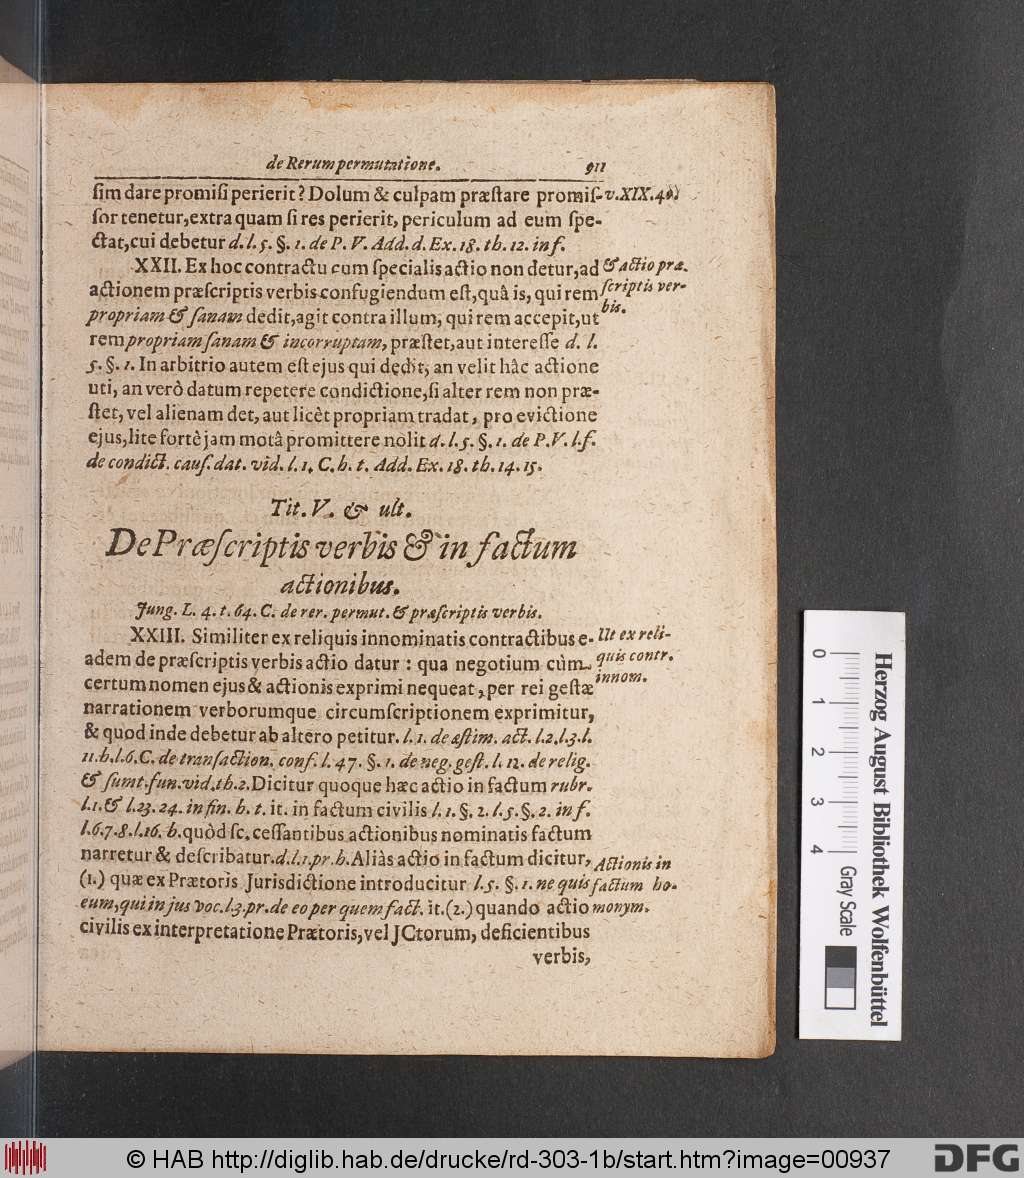 de Rerum permutatione. 911
sim dare promisi perierit? Dolum & culpam præstare promis-
v. XIX. 40)
sor tenetur, extra quam si res perierit, periculum ad eum spe-
ctat, cui debetur d. l. 5. §. 1. de P. V. Add. d. Ex. 18. th. 12. inf.
XXII. Ex hoc contractu cum specialis actio non detur, ad
& actio præ-
actionem præscriptis verbis confugiendum est, quâ is, qui rem
scriptis ver-
propriam & sanam dedit, agit contra illum, qui rem accepit, ut
bis.
rem propriam sanam & incorruptam, præstet, aut interesse d. l.
5. §. 1. In arbitrio autem est ejus qui dedit, an velit hâc actione
uti, an verò datum repetere condictione, si alter rem non præ-
stet, vel alienam det, aut licèt propriam tradat, pro evictione
ejus, lite fortè jam motâ promittere nolit d. l. 5. §. 1. de P. V. l. f.
de condict. caus. dat. vid. l. 1. C. h. t. Add. Ex. 18. th. 14. 15.
Tit. V. & ult.
De Præscriptis verbis & in factum
actionibus.
Jung. L. 4. t. 64. C. de rer. permut. & præscriptis verbis.
XXIII. Similiter ex reliquis innominatis contractibus e-
Ut ex reli-
adem de præscriptis verbis actio datur : qua negotium cùm
quis contr.
certum nomen ejus & actionis exprimi nequeat, per rei gestæ
innom.
narrationem verborumque circumscriptionem exprimitur,
& quod inde debetur ab altero petitur. l. 1. de æstim. act. l. 2. l. 3. l.
11. h. l. 6. C. de transaction. conf. l. 47. §. 1. de neg. gest. l. 12. de relig.
& sumt. fun. vid. th. 2. Dicitur quoque hæc actio in factum rubr.
l. 1. & l. 23. 24. in fin. h. t. it. in factum civilis l. 1. §. 2. l. 5. §. 2. inf.
l. 6. 7. 8. l. 16. h. quòd sc. cessantibus actionibus nominatis factum
narretur & describatur. d. l. 1. pr. h. Aliàs actio in factum dicitur,
Actionis in
(1.) quæ ex Prætoris Jurisdictione introducitur l. 5. §. 1. ne quis
factum ho-
eum, qui in jus voc. l. 3. pr. de eo per quem fact. it. (2.) quando actio
monym.
civilis ex interpretatione Prætoris, vel JCtorum, deficientibus
verbis,
0 1 2 3 4
Gray Scale
Herzog August Bibliothek Wolfenbüttel
© HAB http://diglib.hab.de/drucke/rd-303-1b/start.htm?image=00937
DFG